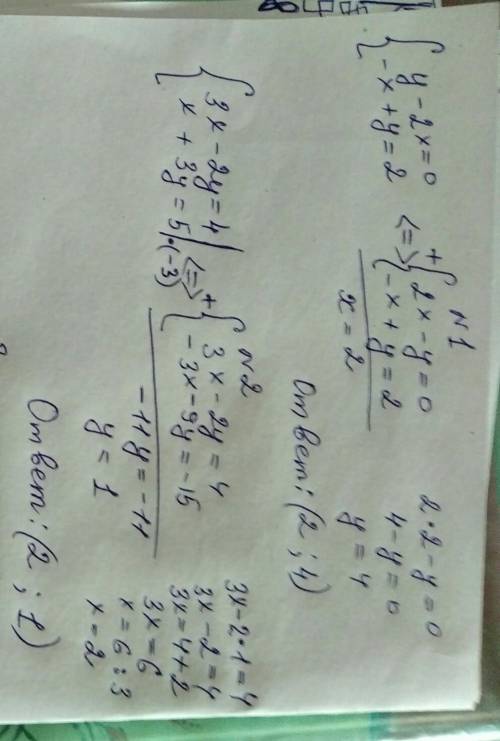 N1
{ y - 2x = 0
{ -x + y = 2
<=> + { 2x - y = 0
{ -x + y = 2
x = 2
2·2 - y = 0
4 - y = 0
y = 4
Ответ: (2 ; 4)
N2
{ 3x - 2y = 4
{ x + 3y = 5 | ·(-3)
<=> + { 3x - 2y = 4
{ - 3x - 9y = -15
-11y = -11
y = 1
3x - 2·1 = 4
3x - 2 = 4
3x = 4 + 2
3x = 6
x = 6 : 3
x = 2
Ответ: (2 ; 1)